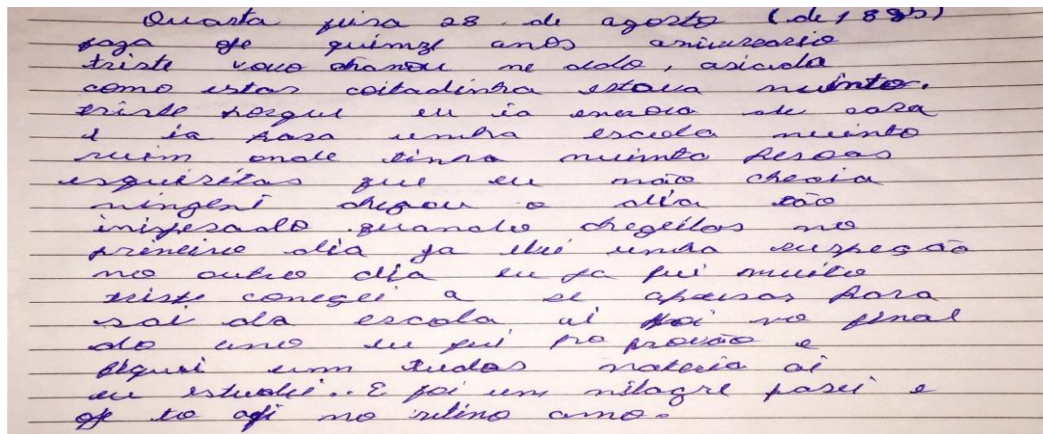 Quarta feira 28 de agosto (de 1895)
faza oje quimze anos aniversario
triste vovo chamou me aldo, asiada
como estas coitadinha estava muinto.
triste porque eu ia embora de casa
e ia para umha escola muinto
ruim onde tinha muimta pesoas
esquisitas que eu não checia
ningem chegou o dia tão
inisperado quando chegeilos no
primeiro dia ja tive umha suspeção
no outro dia eu ja fui muito
triste conegei a se apresar para
sai da escola ai foi no final
do ano eu fui pro provão e
pequei um tudas materia ai
eu estudei.. E foi um milagre pasei e
oje to aqi no ultino amo.